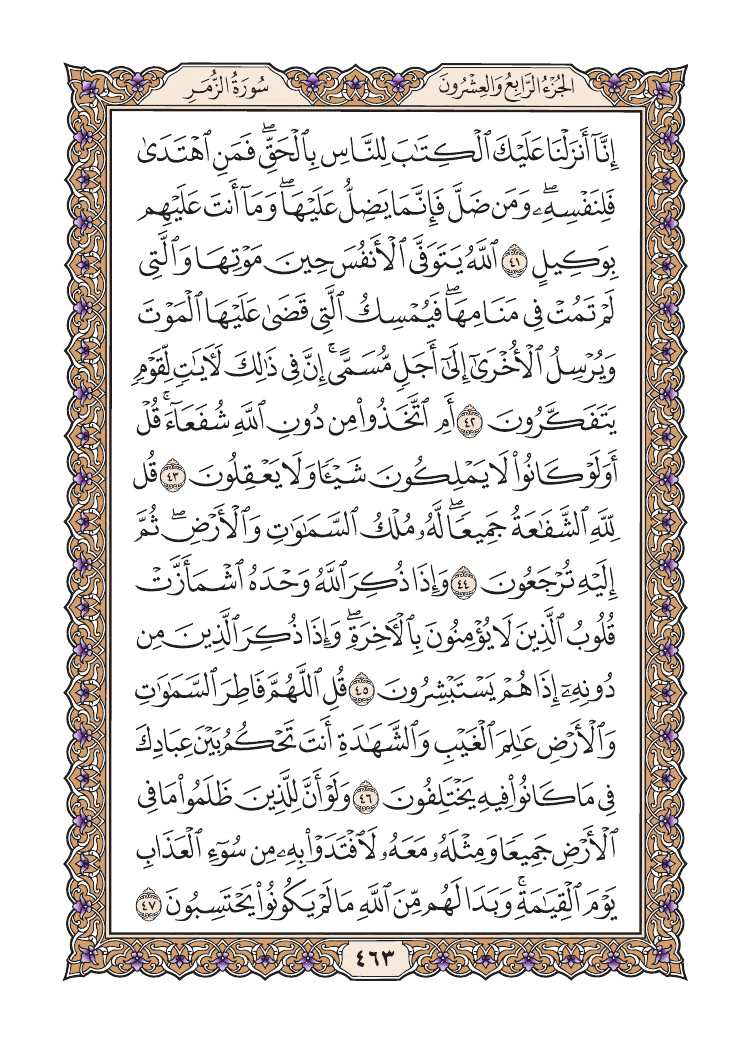 الجُزْءُ الرَّابِعُ وَالعِشْرُونَ
سُورَةُ الزُّمَرِ
إِنَّآ أَنزَلۡنَا عَلَيۡكَ ٱلۡكِتَٰبَ لِلنَّاسِ بِٱلۡحَقِّۖ فَمَنِ ٱهۡتَدَىٰ
فَلِنَفۡسِهِۦۖ وَمَن ضَلَّ فَإِنَّمَا يَضِلُّ عَلَيۡهَاۖ وَمَآ أَنتَ عَلَيۡهِم
بِوَكِيلٍ ٤١ ٱللَّهُ يَتَوَفَّى ٱلۡأَنفُسَ حِينَ مَوۡتِهَا وَٱلَّتِي
لَمۡ تَمُتۡ فِي مَنَامِهَاۖ فَيُمۡسِكُ ٱلَّتِي قَضَىٰ عَلَيۡهَا ٱلۡمَوۡتَ
وَيُرۡسِلُ ٱلۡأُخۡرَىٰٓ إِلَىٰٓ أَجَلٖ مُّسَمًّىۚ إِنَّ فِي ذَٰلِكَ لَأٓيَٰتٖ لِّقَوۡمٖ
يَتَفَكَّرُونَ ٤٢ أَمِ ٱتَّخَذُواْ مِن دُونِ ٱللَّهِ شُفَعَآءَۚ قُلۡ
أَوَلَوۡ كَانُواْ لَا يَمۡلِكُونَ شَيۡـٔٗا وَلَا يَعۡقِلُونَ ٤٣ قُل
لِّلَّهِ ٱلشَّفَٰعَةُ جَمِيعٗاۖ لَّهُۥ مُلۡكُ ٱلسَّمَٰوَٰتِ وَٱلۡأَرۡضِۖ ثُمَّ
إِلَيۡهِ تُرۡجَعُونَ ٤٤ وَإِذَا ذُكِرَ ٱللَّهُ وَحۡدَهُ ٱشۡمَأَزَّتۡ
قُلُوبُ ٱلَّذِينَ لَا يُؤۡمِنُونَ بِٱلۡأٓخِرَةِۖ وَإِذَا ذُكِرَ ٱلَّذِينَ مِن
دُونِهِۦٓ إِذَا هُمۡ يَسۡتَبۡشِرُونَ ٤٥ قُلِ ٱللَّهُمَّ فَاطِرَ ٱلسَّمَٰوَٰتِ
وَٱلۡأَرۡضِ عَٰلِمَ ٱلۡغَيۡبِ وَٱلشَّهَٰدَةِ أَنتَ تَحۡكُمُ بَيۡنَ عِبَادِكَ
فِي مَا كَانُواْ فِيهِ يَخۡتَلِفُونَ ٤٦ وَلَوۡ أَنَّ لِلَّذِينَ ظَلَمُواْ مَا فِي
ٱلۡأَرۡضِ جَمِيعٗا وَمِثۡلَهُۥ مَعَهُۥ لَٱفۡتَدَوۡاْ بِهِۦ مِن سُوٓءِ ٱلۡعَذَابِ
يَوۡمَ ٱلۡقِيَٰمَةِۚ وَبَدَا لَهُم مِّنَ ٱللَّهِ مَا لَمۡ يَكُونُواْ يَحۡتَسِبُونَ ٤٧
٤٦٣